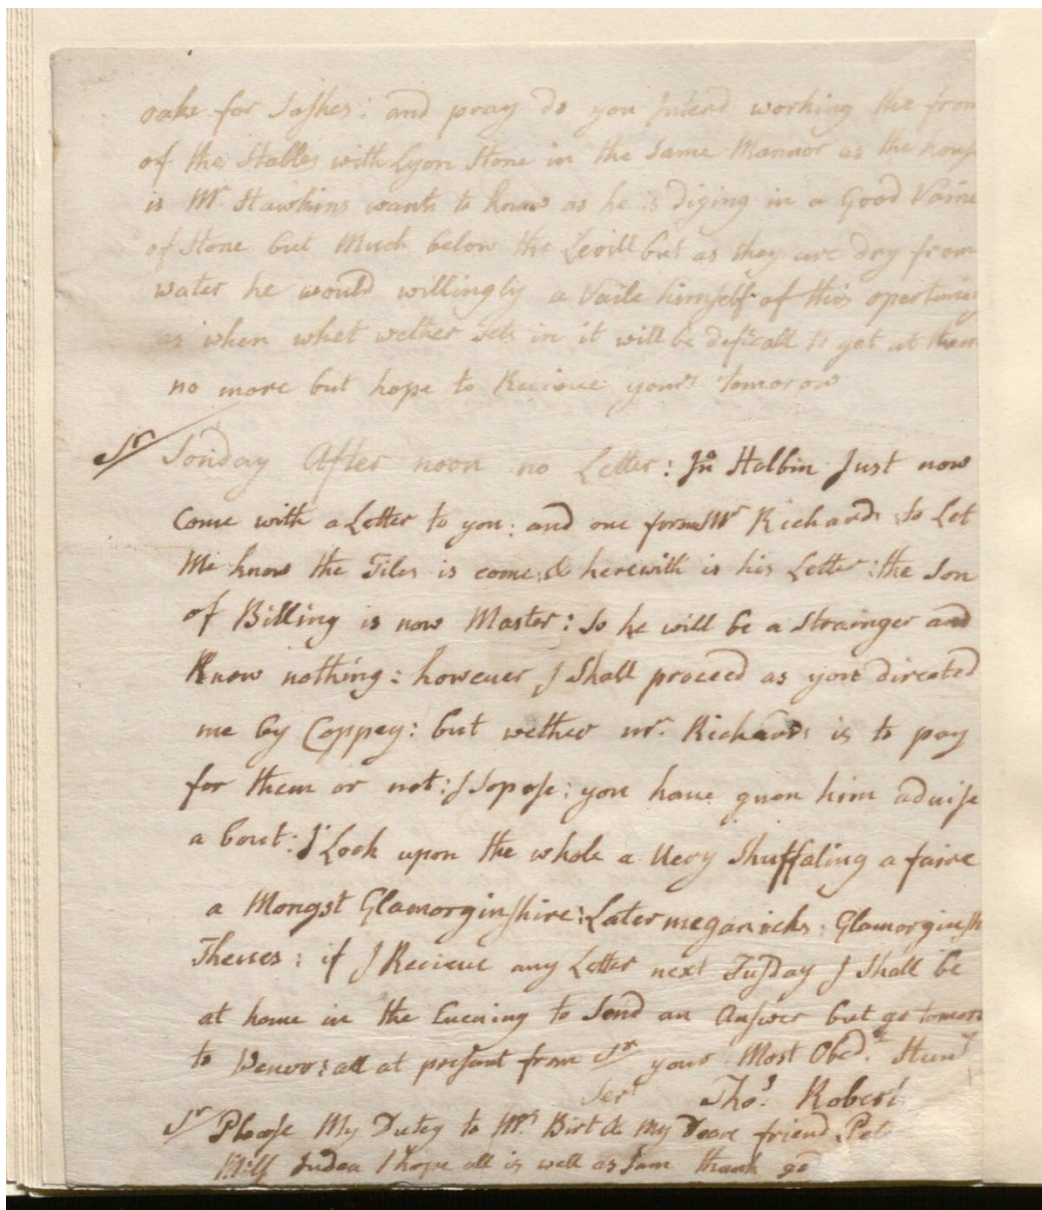 oake for Sashes: and pray do you Intend working the fron
of the Stables with Lyon Stone in the Same Mannor as the hous
is Mr. Hawkins wants to know as he is diging in a Good Vaine
of Stone but Much below the Levill but as they are dry from
water he would willingly a Vaile himself of this opertunity
as when whet wether sets in it will be deficall to get at them
no more but hope to Recieve yours tomorow
Sr Sonday After noon no Letter: Jno Halbin Just now
Come with a Letter to you: and one from Mr Richards to Let
Me know the Tiles is come & herewith is his Letter: the Son
of Billing is now Master: So he will be a Strainger and
Know nothing: however I Shall proceed as you directed
me by Coppey: but wether mr. Richards is to pay
for them or not: I Sopose: you have given him advise
a bout: I Look upon the whole a Very Shuffaling a faire
a Mongst Glamorginshire: Glamorginsh
Theives: if I Recieve any Letter next Tusday I Shall be
at home in the Evening to Send an Answer but go tomoro
to all at presant from Sr your Most Obed.t Hum
Sert Thos. Robert
Sr Please My Dutey to Mrs Birt & My Deare friend
I hope all is well as I am thank go